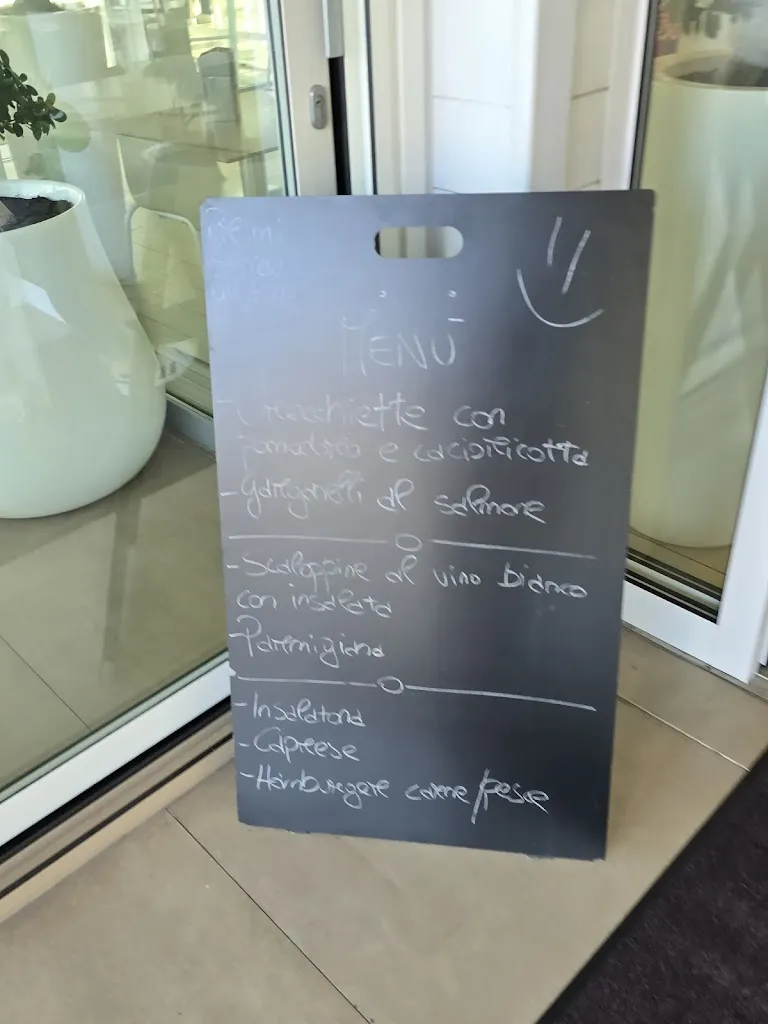 MENÙ
- Orecchiette con
pomodoro e cacioricotta
- Garganelli al salmone
- Scaloppine al vino bianco
con insalata
- Parmigiana
- Insalatona
- Caprese
- Hamburger carne/pesce